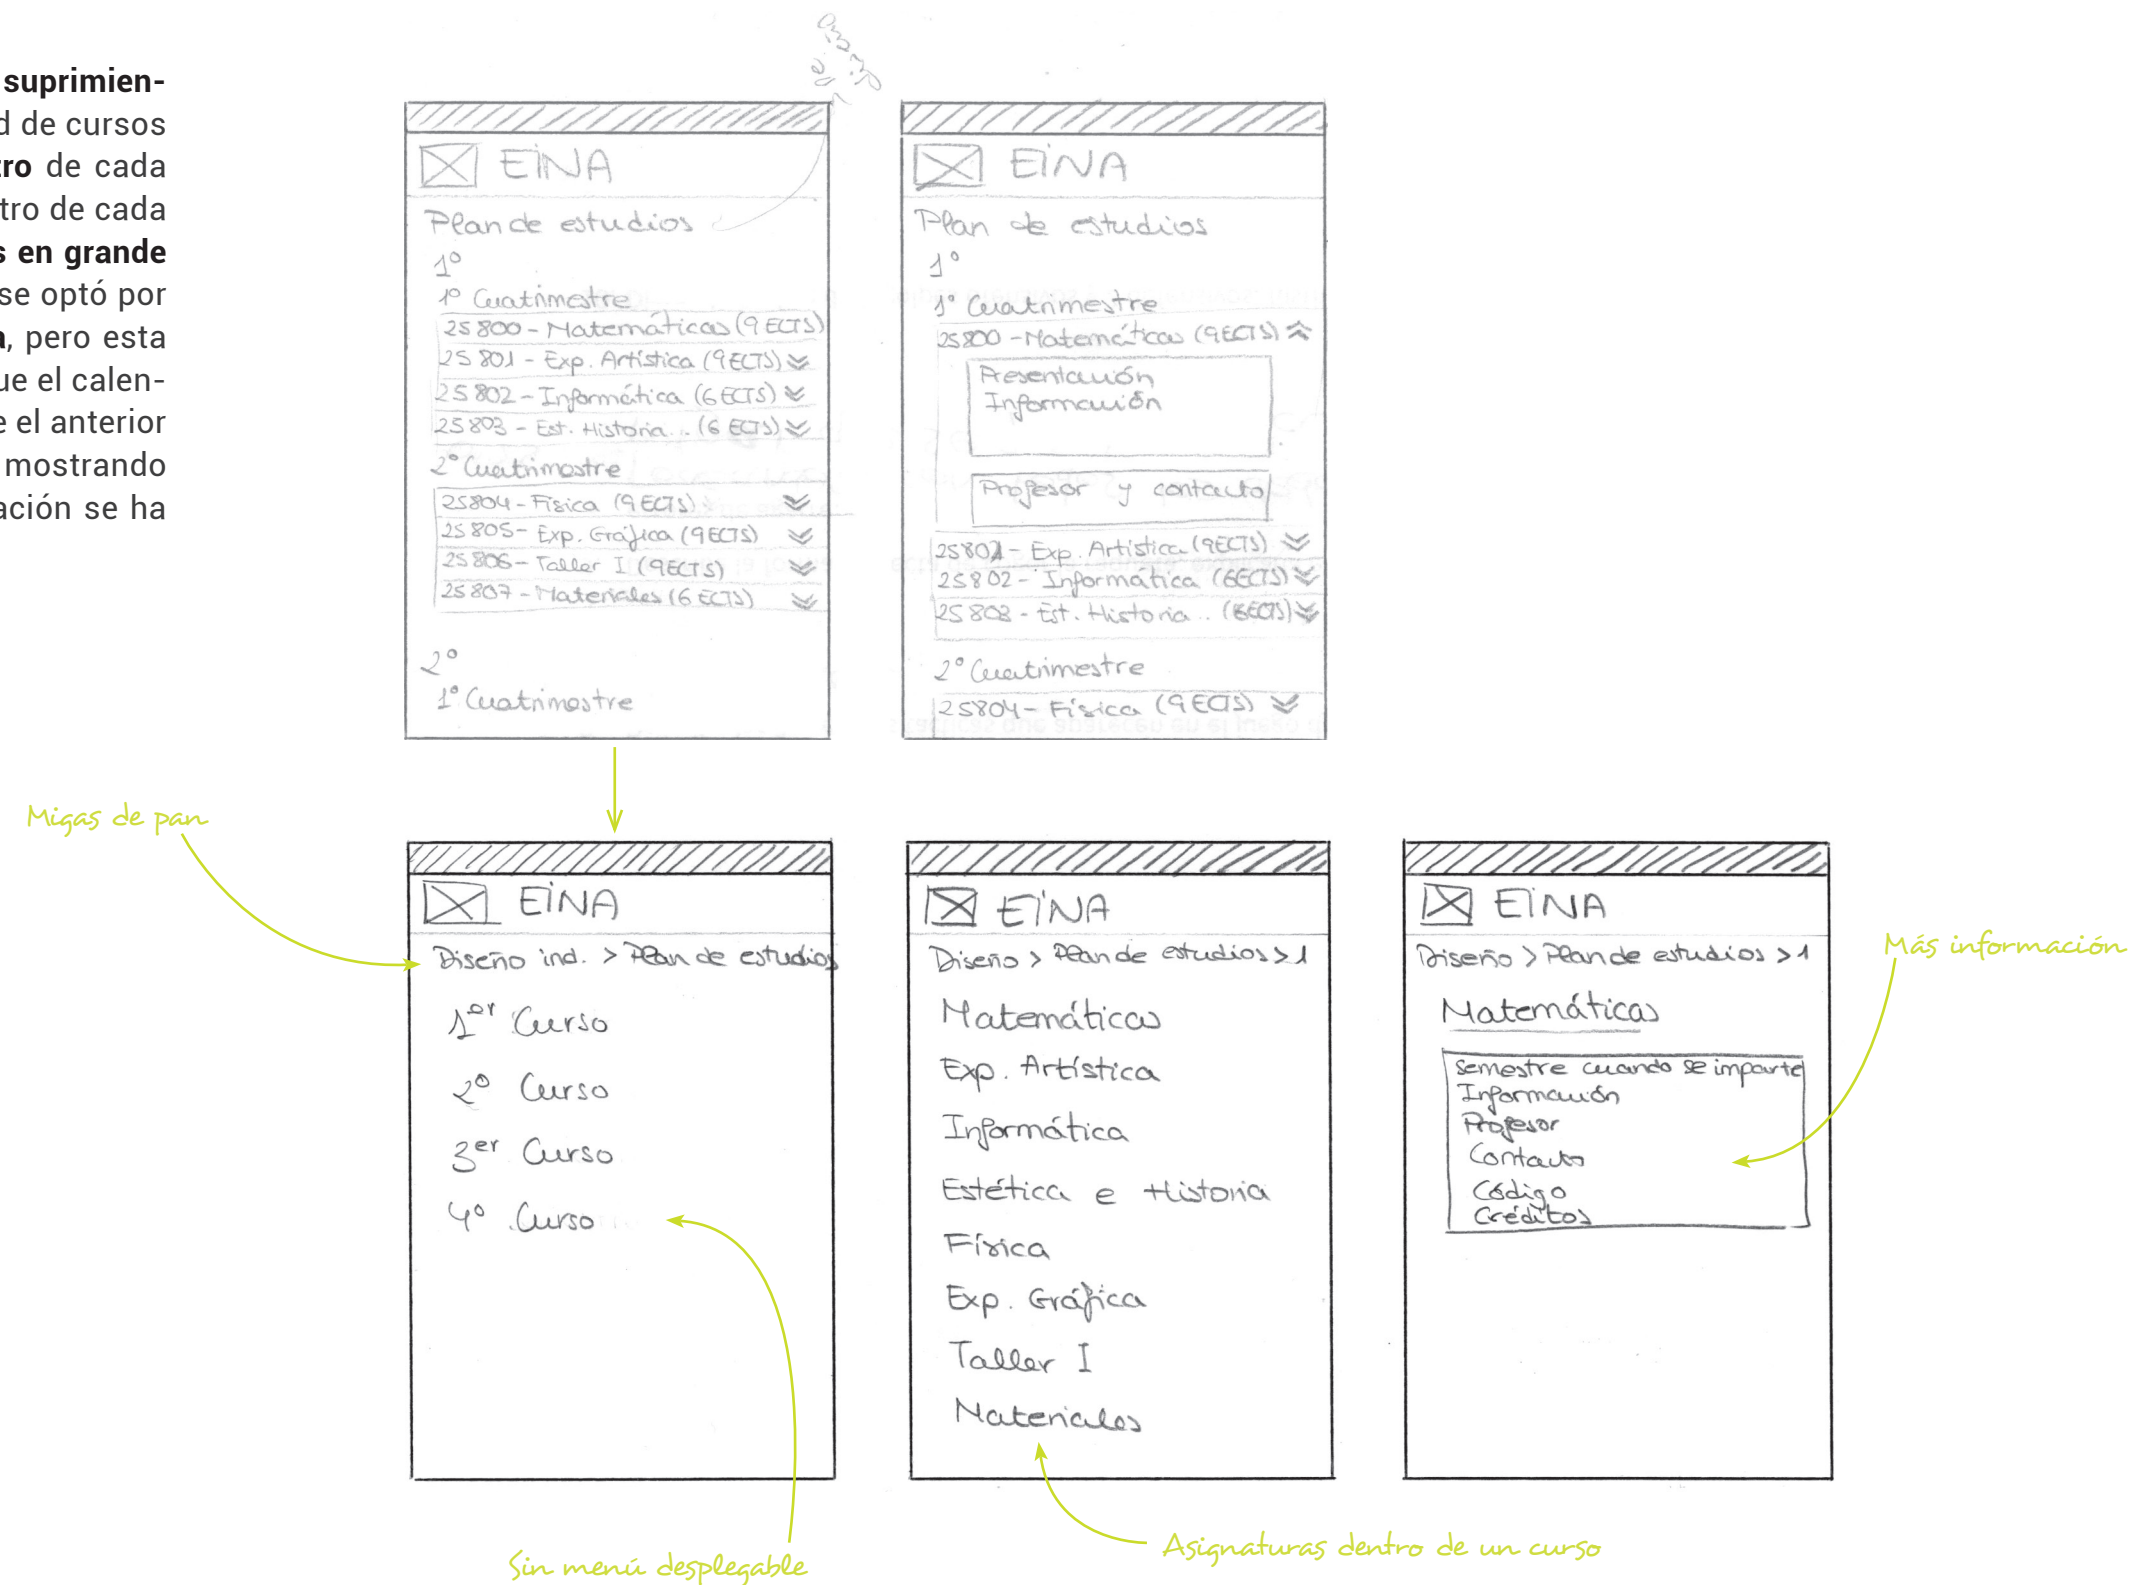 suprimien-
d de cursos
tro de cada
tro de cada
s en grande
se optó por
a, pero esta
ue el calen-
e el anterior
mostrando
ación se ha
EINA
Plan de estudios
1º
1º Cuatrimestre
25800 - Matemáticas (9 ECTS)
25801 - Exp. Artística (9 ECTS)
25802 - Informática (6 ECTS)
25803 - Est. Historia... (6 ECTS)
2º Cuatrimestre
25804 - Física (9 ECTS)
25805 - Exp. Gráfica (9 ECTS)
25806 - Taller I (9 ECTS)
25807 - Materiales (6 ECTS)
2º
1º Cuatrimestre
EINA
Plan de estudios
1º
1º Cuatrimestre
25800 - Matemáticas (9 ECTS)
Presentación
Información
Profesor y contacto
25801 - Exp. Artística (9 ECTS)
25802 - Informática (6 ECTS)
25803 - Est. Historia .. (6 ECTS)
2º Cuatrimestre
25804 - Física (9 ECTS)
Migas de pan
EINA
Diseño ind. > Plan de estudios
1er Curso
2º Curso
3er Curso
4º Curso
Sin menú desplegable
EINA
Diseño > Plan de estudios > 1
Matemáticas
Exp. Artística
Informática
Estética e Historia
Física
Exp. Gráfica
Taller I
Materiales
Asignaturas dentro de un curso
EINA
Diseño > Plan de estudios > 1
Matemáticas
Semestre cuando se imparte
Información
Profesor
Contacto
Código
Créditos
Más información